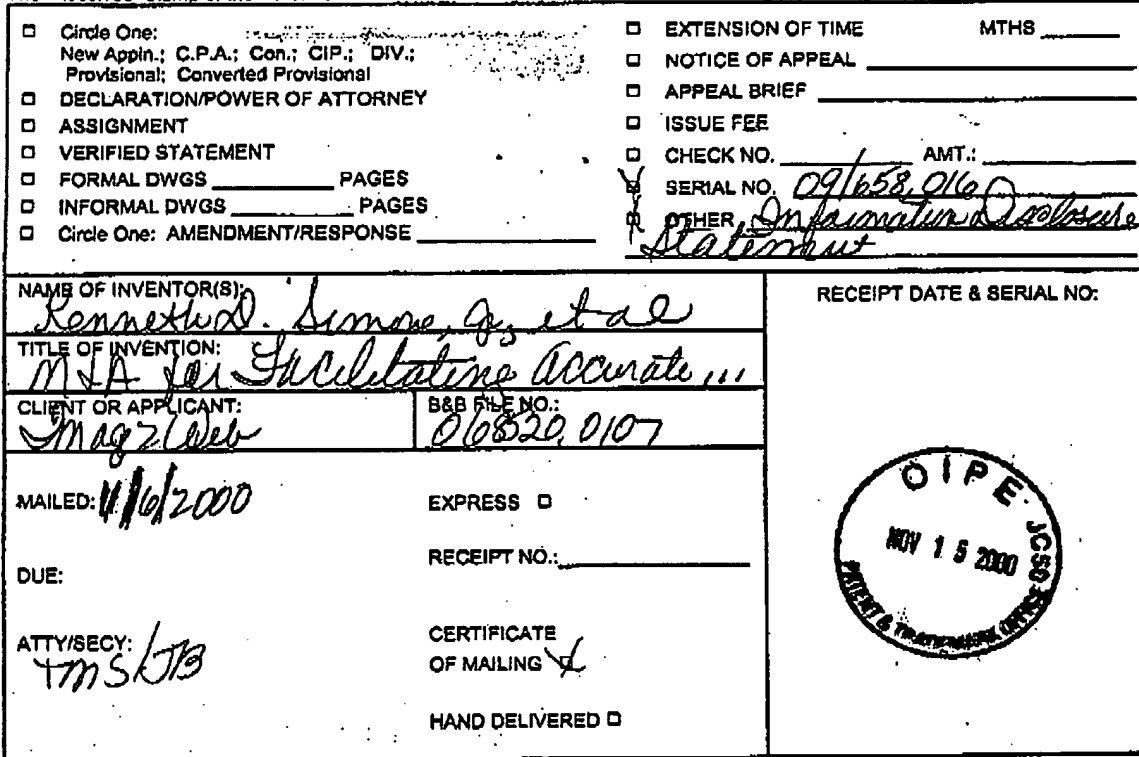 Circle One:
New Appln.; C.P.A.; Con.; CIP.; DIV.;
Provisional; Converted Provisional
DECLARATION/POWER OF ATTORNEY
ASSIGNMENT
VERIFIED STATEMENT
FORMAL DWGS ________ PAGES
INFORMAL DWGS ________ PAGES
Circle One: AMENDMENT/RESPONSE ________
EXTENSION OF TIME MTHS ________
NOTICE OF APPEAL ________
APPEAL BRIEF ________
ISSUE FEE
CHECK NO. ________ AMT.: ________
SERIAL NO. 09/658,016
OTHER Information Disclosure
Statement
NAME OF INVENTOR(S):
Kenneth D. Simone, Jr., et al
TITLE OF INVENTION:
M&A for Facilitating Accurate ...
CLIENT OR APPLICANT:
Imag2Web
B&B FILE NO.:
068520.0107
MAILED: 11/6/2000
EXPRESS
RECEIPT NO.: ________
DUE:
ATTY/SECY:
TMS/JB
CERTIFICATE
OF MAILING
HAND DELIVERED
RECEIPT DATE & SERIAL NO:
OIPE JC50
NOV 15 2000
PATENT & TRADEMARK OFFICE